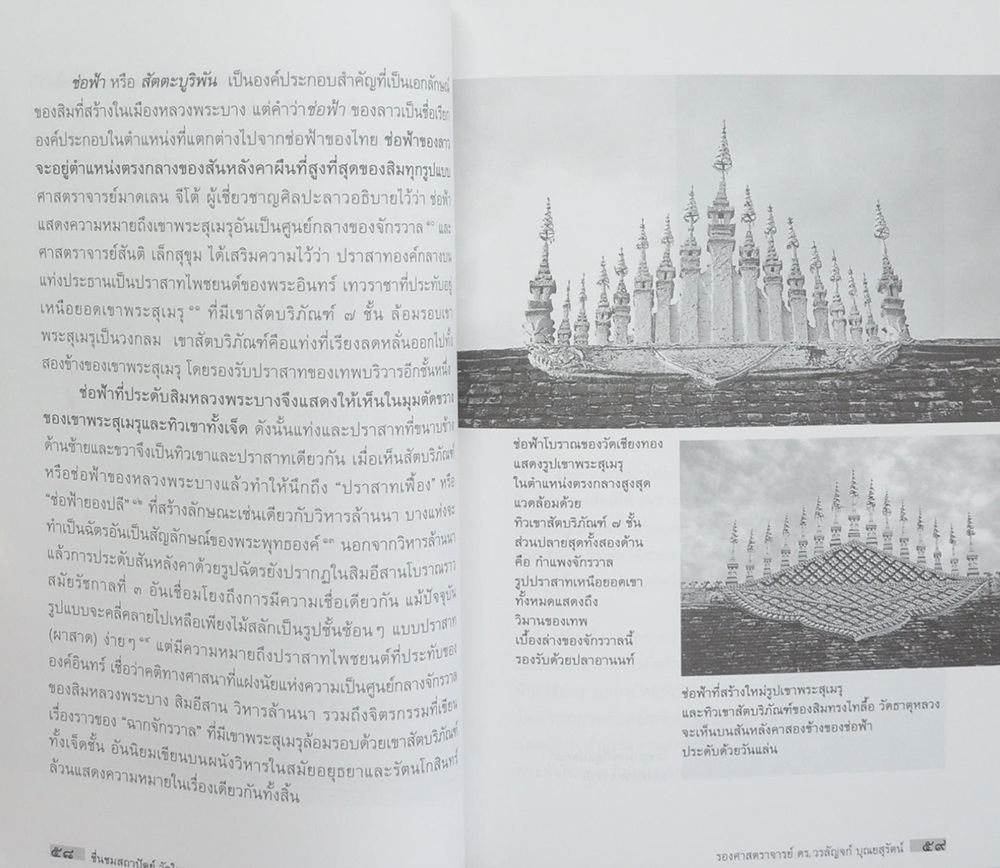 ช่อฟ้า หรือ สัตตะบูริพัน เป็นองค์ประกอบสำคัญที่เป็นเอกลักษณ์
ของสิมที่สร้างในเมืองหลวงพระบาง แต่คำว่าช่อฟ้า ของลาวเป็นชื่อเรียก
องค์ประกอบในตำแหน่งที่แตกต่างไปจากช่อฟ้าของไทย ช่อฟ้าของลาว
จะอยู่ตำแหน่งตรงกลางของสันหลังคาผืนที่สูงที่สุดของสิมทุกรูปแบบ
ศาสตราจารย์มาดเลน จีโต้ ผู้เชี่ยวชาญศิลปะลาวอธิบายไว้ว่า ช่อฟ้า
แสดงความหมายถึงเขาพระสุเมรุอันเป็นศูนย์กลางของจักรวาล ๑๐ และ
ศาสตราจารย์สันติ เล็กสุขุม ได้เสริมความไว้ว่า ปราสาทองค์กลางบน
แท่งประธานเป็นปราสาทไพชยนต์ของพระอินทร์ เทวราชาที่ประทับอยู่
เหนือยอดเขาพระสุเมรุ ๑๑ ที่มีเขาสัตบริภัณฑ์ ๗ ชั้น ล้อมรอบเขา
พระสุเมรุเป็นวงกลม เขาสัตบริภัณฑ์คือแท่งที่เรียงลดหลั่นออกไปทั้ง
สองข้างของเขาพระสุเมรุ โดยรองรับปราสาทของเทพบริวารอีกชั้นหนึ่ง
ช่อฟ้าที่ประดับสิมหลวงพระบางจึงแสดงให้เห็นในมุมตัดขวาง
ของเขาพระสุเมรุและทิวเขาทั้งเจ็ด ดังนั้นแท่งและปราสาทที่ขนาบข้าง
ด้านซ้ายและขวาจึงเป็นทิวเขาและปราสาทเดียวกัน เมื่อเห็นสัตบริภัณฑ์
หรือช่อฟ้าของหลวงพระบางแล้วทำให้นึกถึง “ปราสาทเฟื้อง” หรือ
“ช่อฟ้ายองปลี” ๑๒ ที่สร้างลักษณะเช่นเดียวกับวิหารล้านนา บางแห่งจะ
ทำเป็นฉัตรอันเป็นสัญลักษณ์ของพระพุทธองค์ ๑๓ นอกจากวิหารล้านนา
แล้วการประดับสันหลังคาด้วยรูปฉัตรยังปรากฏในสิมอีสานโบราณราว
สมัยรัชกาลที่ ๓ อันเชื่อมโยงถึงการมีความเชื่อเดียวกัน แม้ปัจจุบัน
รูปแบบจะคลี่คลายไปเหลือเพียงไม้สลักเป็นรูปชั้นซ้อนๆ แบบปราสาท
(ผาสาด) ง่ายๆ ๑๔ แต่มีความหมายถึงปราสาทไพชยนต์ที่ประทับของ
องค์อินทร์ เชื่อว่าคติทางศาสนาที่แฝงนัยแห่งความเป็นศูนย์กลางจักรวาล
ของสิมหลวงพระบาง สิมอีสาน วิหารล้านนา รวมถึงจิตรกรรมที่เขียน
เรื่องราวของ “ฉากจักรวาล” ที่มีเขาพระสุเมรุล้อมรอบด้วยเขาสัตบริภัณฑ์
ทั้งเจ็ดชั้น อันนิยมเขียนบนผนังวิหารในสมัยอยุธยาและรัตนโกสินทร์
ล้วนแสดงความหมายในเรื่องเดียวกันทั้งสิ้น
๕๘ ชื่นชมสถาปัตย์
ช่อฟ้าโบราณของวัดเชียงทอง
แสดงรูปเขาพระสุเมรุ
ในตำแหน่งตรงกลางสูงสุด
แวดล้อมด้วย
ทิวเขาสัตบริภัณฑ์ ๗ ชั้น
ส่วนปลายสุดทั้งสองด้าน
คือ กำแพงจักรวาล
รูปปราสาทเหนือยอดเขา
ทั้งหมดแสดงถึง
วิมานของเทพ
เบื้องล่างของจักรวาลนี้
รองรับด้วยปลาอานนท์
ช่อฟ้าที่สร้างใหม่รูปเขาพระสุเมรุ
และทิวเขาสัตบริภัณฑ์ของสิมทรงไทลื้อ วัดธาตุหลวง
จะเห็นบนสันหลังคาสองข้างของช่อฟ้า
ประดับด้วยวันแล่น
รองศาสตราจารย์ ดร.วรลัญจก์ บุณยสุรัตน์ ๕๙